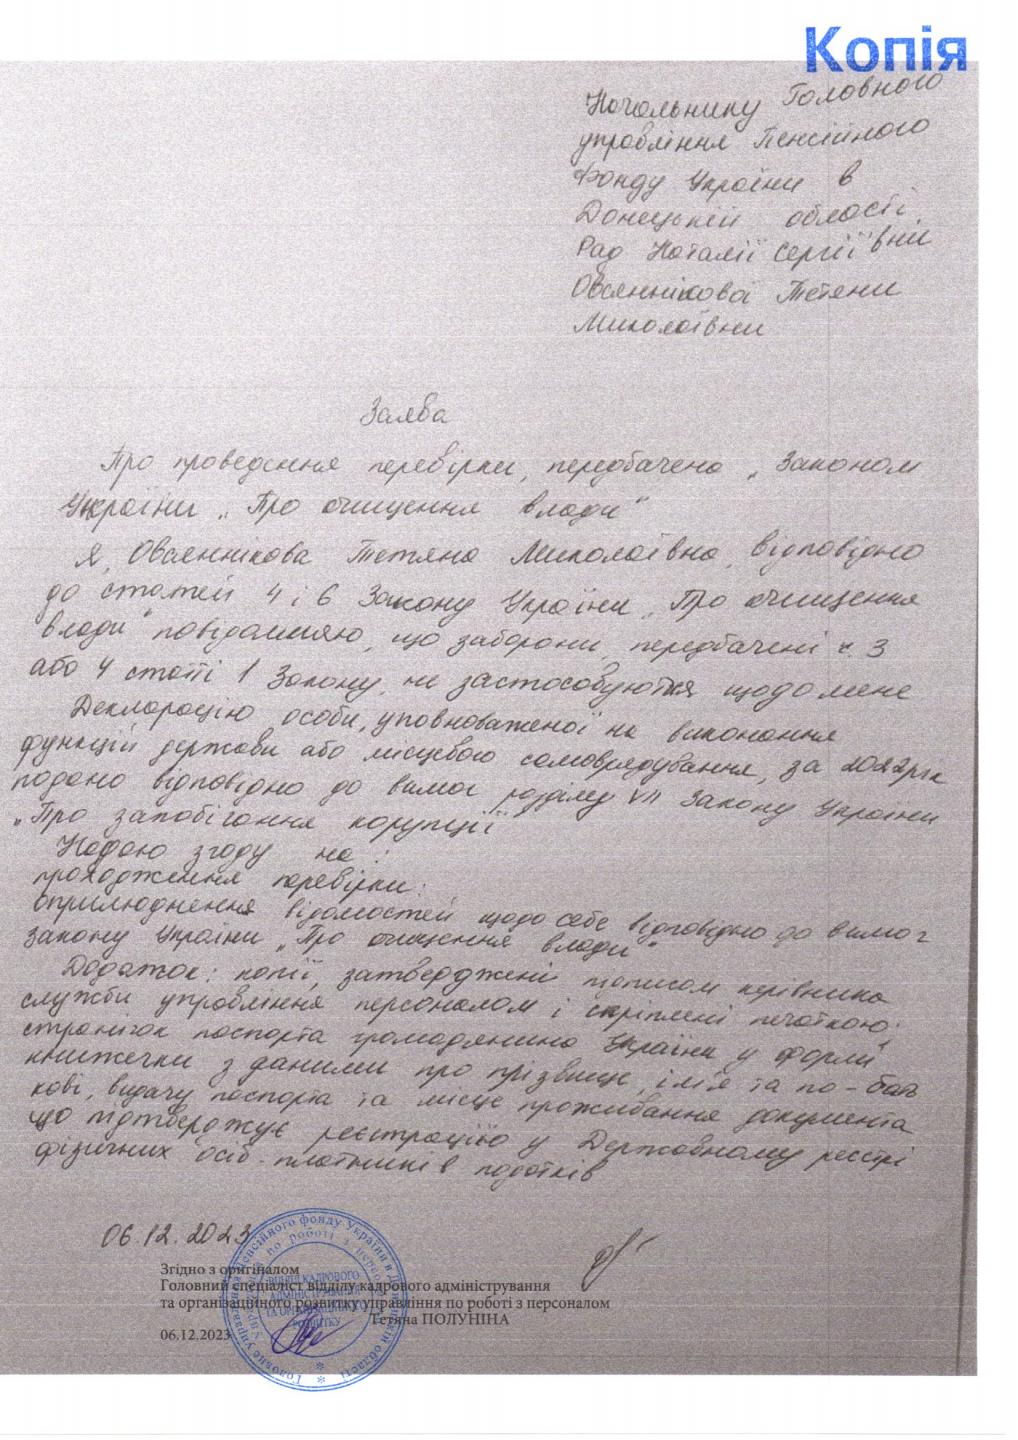 Копія
Начальнику Головного
управління Пенсійного
Фонду України в
Донецькій області
Рад Наталії Сергіївни
Овсяннікової Тетяни
Миколаївни
Заява
Про проведення перевірки, передбачено „Законом
України „Про очищення влади“
Я, Овсяннікова Тетяна Миколаївна, відповідно
до статей 4 і 6 Закону України „Про очищення
влади“ повідомляю, що заборони, передбачені ч. 3
або 4 статті 1 Закону, не застосовуються щодо мене
Декларацію особи, уповноваженої на виконання
функцій держави або місцевого самоврядування, за 2022 рік
подано відповідно до вимог розділу VII Закону України
„Про запобігання корупції“
Надаю згоду на:
проходження перевірки:
оприлюднення відомостей щодо себе відповідно до вимог
Закону України „Про очищення влади“
Додаток: копії, затверджені підписом керівника
служби управління персоналом і скріплені печаткою:
сторінок паспорта громадянина України у формі
книжечки з даними про прізвище, ім'я та по-бать
кові, видачу паспорта та місце проживання документа
що підтверджує реєстрацію у Державному реєстрі
фізичних осіб-платників податків
06.12.2023
Згідно з оригіналом
Головний спеціаліст відділу кадрового адміністрування
та організаційного розвитку управління по роботі з персоналом
Тетяна ПОЛУНІНА
06.12.2023
Головне управління Пенсійного фонду України в Донецькій області
Управління по роботі з персоналом
ВІДДІЛ КАДРОВОГО
АДМІНІСТРУВАННЯ
ТА ОРГАНІЗАЦІЙНОГО
РОЗВИТКУ